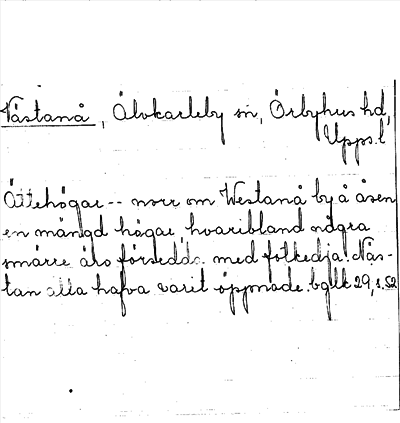 Västanå, Älvkarleby sn, Örbyhus hd,
Upps.l
Ättehögar -- norr om Westanå by å åsen
en mängd högar, hvaribland några
smärre äro försedda med fotkedja. Näs-
tan alla hafva varit öppnade. bglk 29, s. 52